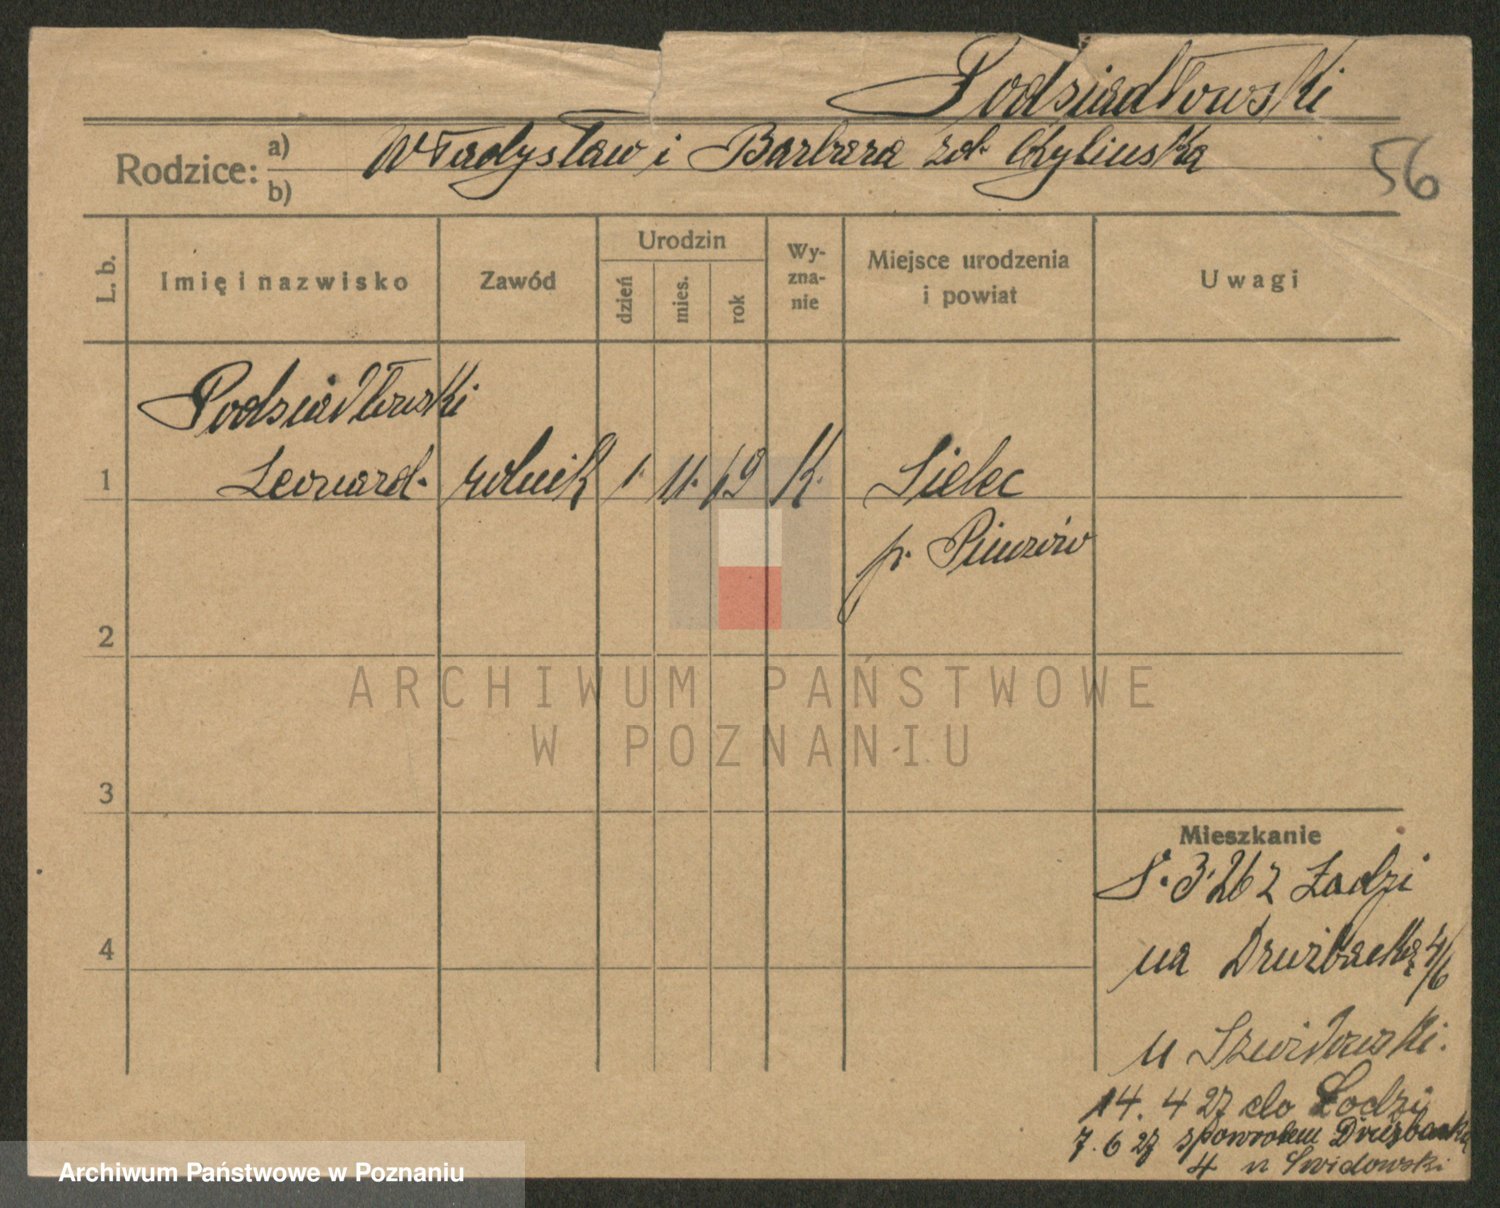 Podziadłowski
Rodzice: a) b) Władysław i Barbara
56
L. b.
Imię i nazwisko
Zawód
Urodzin
dzień
mies.
rok
Wy-
zna-
nie
Miejsce urodzenia
i powiat
Uwagi
Podziadłowski
1 Leonard. rolnik 1. 11. 69 K. Sielec
p. Pinczów
2
3
4
Mieszkanie
3.26 z Łodzi
na Drużbacką 4/6
u
14. 4 27 do Łodzi
7. 6 27 spowrotem Drużbacka
4 u Swidowski
ARCHIWUM PAŃSTWOWE
W POZNANIU
Archiwum Państwowe w Poznaniu